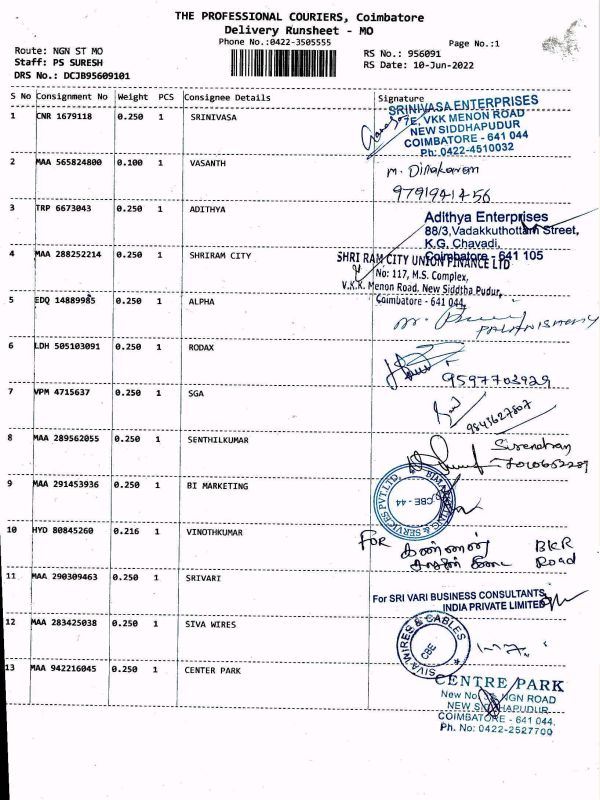 THE PROFESSIONAL COURIERS, Coimbatore
Delivery Runsheet - MO
Phone No.:0422-3505555
Page No.:1
Route: NGN ST MO
Staff: PS SURESH
DRS No.: DCJB95609101
RS No.: 956091
RS Date: 10-Jun-2022
S No Consignment No Weight PCS Consignee Details Signature
1 CNR 1679118 0.250 1 SRINIVASA
SRINIVASA ENTERPRISES
7E, VKK MENON ROAD
NEW SIDDHAPUDUR
COIMBATORE - 641 044
Ph: 0422-4510032
2 MAA 565824800 0.100 1 VASANTH
m. Dinakaran
9791941456
3 TRP 6673043 0.250 1 ADITHYA
Adithya Enterprises
88/3,Vadakkuthottam Street,
K.G. Chavadi,
Coimbatore - 641 105
4 MAA 288252214 0.250 1 SHRIRAM CITY
SHRI RAM CITY UNION FINANCE LTD
No: 117, M.S. Complex,
V.K.K. Menon Road, New Siddtha Pudur,
Coimbatore - 641 044.
5 EDQ 14889985 0.250 1 ALPHA
PALANISAMY
6 LDH 505103091 0.250 1 RODAX
9597703929
7 VPM 4715637 0.250 1 SGA
9843627807
8 MAA 289562055 0.250 1 SENTHILKUMAR
9 MAA 291453936 0.250 1 BI MARKETING
& SERVICES PVT.LTD.
CBE - 44
10 HYD 80845260 0.216 1 VINOTHKUMAR
For கண்ணன் BKR
Road
11 MAA 290309463 0.250 1 SRIVARI
For SRI VARI BUSINESS CONSULTANTS
INDIA PRIVATE LIMITED
12 MAA 283425038 0.250 1 SIVA WIRES
SIVA WIRES & CABLES
CBE
13 MAA 942216045 0.250 1 CENTER PARK
CENTRE PARK
New No. NGN ROAD
NEW SIDDHAPUDUR
COIMBATORE - 641 044.
Ph. No: 0422-2527700